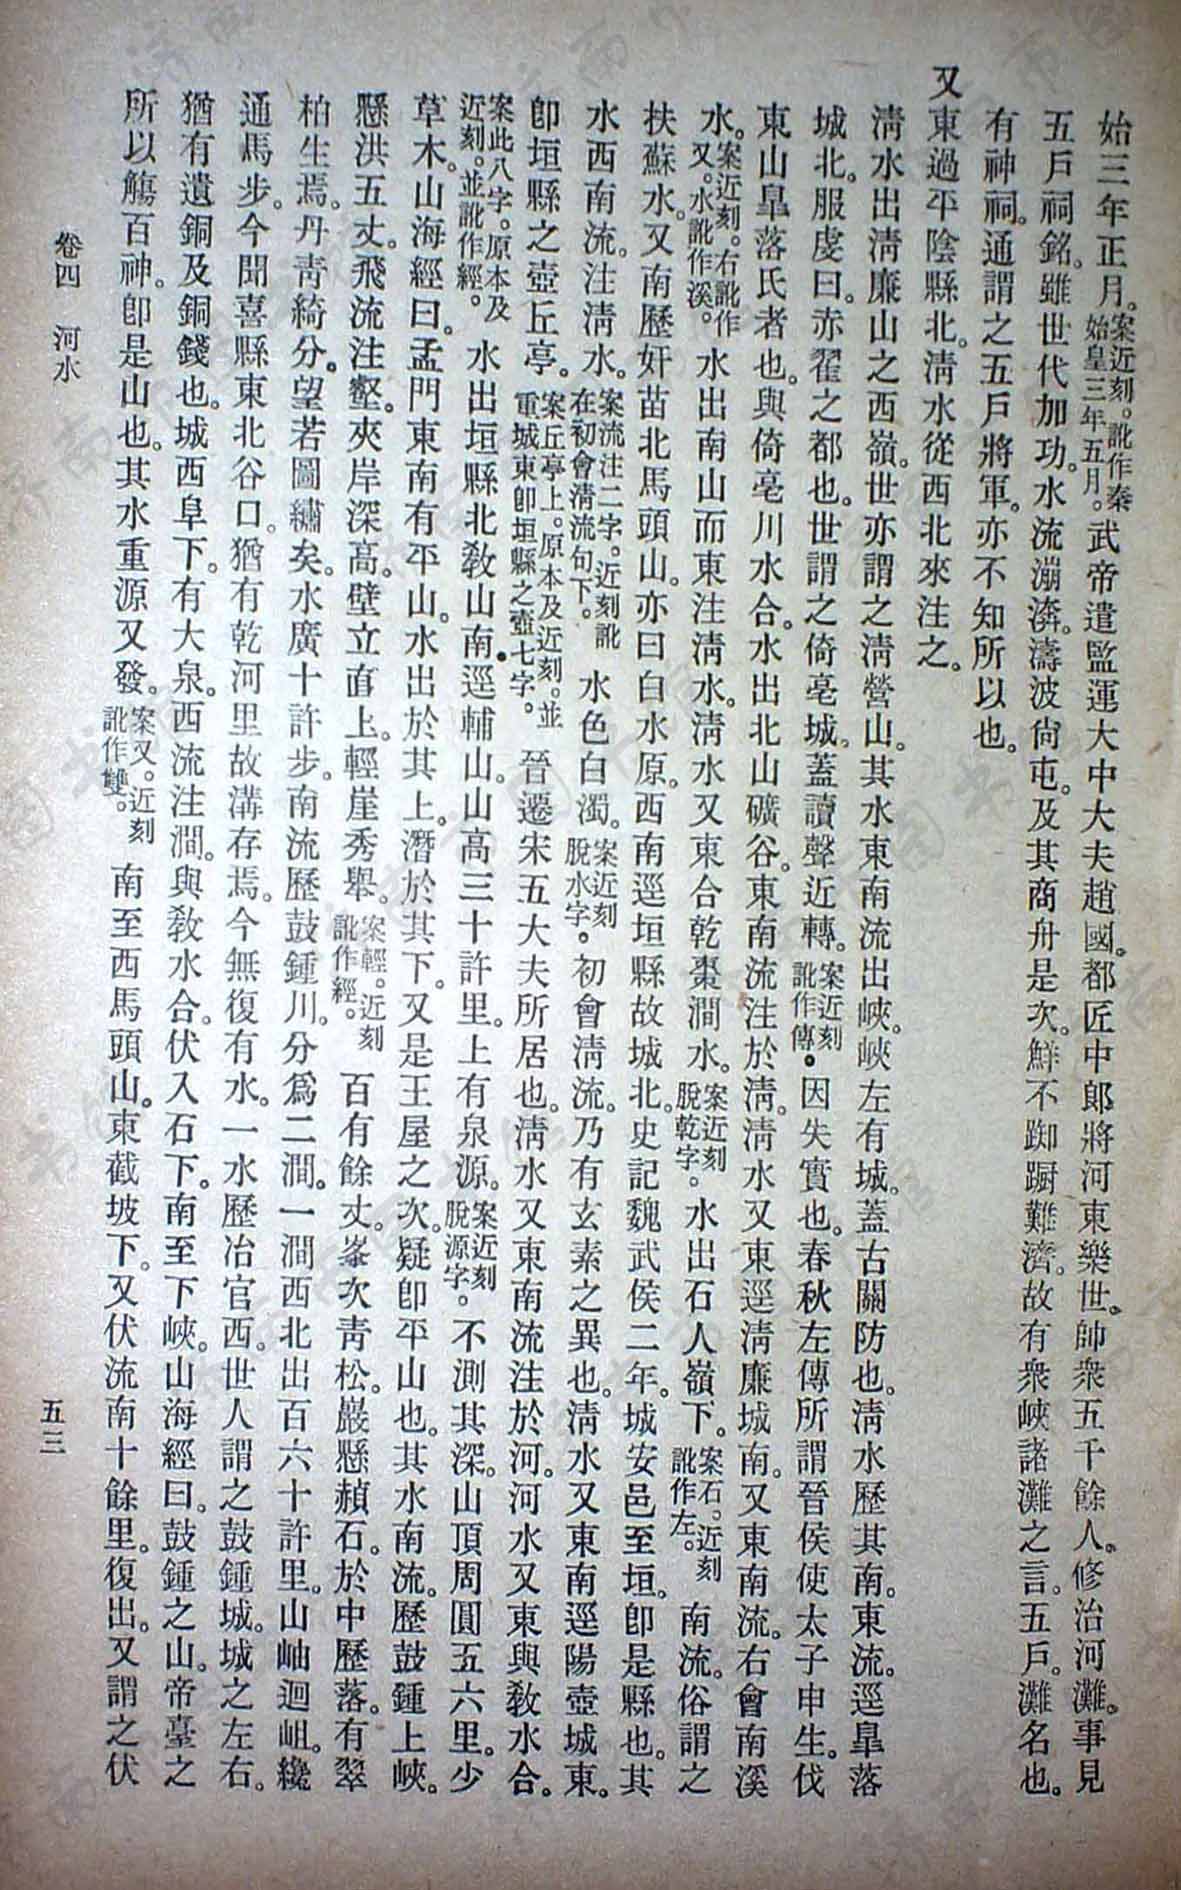 始三年正月。案近刻。訛作秦始皇三年五月。武帝遣監運大中大夫趙國。都匠中郎將河東樂世。帥衆五千餘人。修治河灘。事見
五戶祠銘。雖世代加功。水流漰濟。濤波尙屯。及其商舟是次。鮮不踟躕難濟。故有衆峽諸灘之言。五戶。灘名也。
有神祠。通謂之五戶將軍。亦不知所以也。
又東過平陰縣北。淸水從西北來注之。
淸水出淸廉山之西嶺。世亦謂之淸營山。其水東南流出峽。峽左有城。蓋古關防也。淸水歷其南。東流。逕皐落
城北。服虔曰。赤翟之都也。世謂之倚亳城。蓋讀聲近轉。案近刻訛作傳。因失實也。春秋左傳所謂晉侯使太子申生。伐
東山皐落氏者也。與倚亳川水合。水出北山礦谷。東南流注於淸。淸水又東逕淸廉城南。又東南流。右會南溪
水。案近刻。右訛作又。水訛作溪。水出南山而東注淸水。淸水又東合乾棗澗水。案近刻脫乾字。水出石人嶺下。案石。近刻訛作左。南流。俗謂之
扶蘇水。又南歷奸苗北馬頭山。亦曰白水原。西南逕垣縣故城北。史記魏武侯二年。城安邑至垣。卽是縣也。其
水西南流。注淸水。案流注二字。近刻訛在初會淸流句下。水色白濁。案近刻脫水字。初會淸流。乃有玄素之異也。淸水又東南逕陽壺城東。
卽垣縣之壺丘亭。案丘亭上。原本及近刻。並重城東卽垣縣之壺七字。晉遷宋五大夫所居也。淸水又東南流注於河。河水又東與敎水合。
案此八字。原本及近刻。並訛作經。水出垣縣北敎山南。逕輔山。山高三十許里。上有泉源。案近刻脫源字。不測其深。山頂周圓五六里。少
草木。山海經曰。孟門東南有平山。水出於其上。潛於其下。又是王屋之次。疑卽平山也。其水南流。歷鼓鍾上峽。
懸洪五丈。飛流注壑。夾岸深高。壁立直上。輕崖秀舉。案輕。近刻訛作經。百有餘丈。峯次靑松。巖懸赬石。於中歷落。有翠
柏生焉。丹靑綺分。望若圖繡矣。水廣十許步。南流歷鼓鍾川。分爲二澗。一澗西北出百六十許里。山岫迴岨。纔
通馬步。今聞喜縣東北谷口。猶有乾河里故溝存焉。今無復有水。一水歷冶官西。世人謂之鼓鍾城。城之左右。
猶有遺銅及銅錢也。城西阜下。有大泉。西流注澗。與敎水合。伏入石下。南至下峽。山海經曰。鼓鍾之山。帝臺之
所以觴百神。卽是山也。其水重源又發。案又。近刻訛作雙。南至西馬頭山。東截坡下。又伏流南十餘里。復出。又謂之伏
卷四　河水
五三